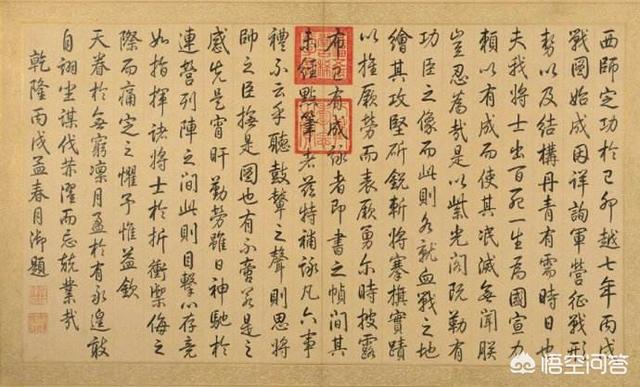 西師定功於己卯越七年丙戌
戰圖始成因詳詢軍營征戰形
勢以及結構丹青有需時日也
夫我將士出百死一生為國宣力
賴以有成而使其泯滅無聞朕
豈忍為哉是以紫光閣既勒有
功臣之像而此則各就血戰之地
繪其攻堅斫銳斬將搴旗實蹟
以推厥勞而表厥勇爾時披露
布已有成詠者即書之幀間其
未經點筆者茲特補詠凡六事
禮不云乎聽鼓鼙之聲則思將
帥之臣撫是圖也有不啻若是之
感先是宵旰勤勞雖日神馳於
連營列陣之間此則目擊以存竟
如指揮諸將士於折衝禦侮之
際而痛定之懼予惟益欽
天眷於無窮凜月盈於有永遑敢
自詡坐謀伐赫濯而忘兢業哉
乾隆丙戌孟春月御題
悟空问答